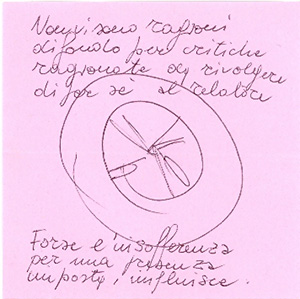 Non vi sono ragioni
di fondo per critiche
ragionate da rivolgere
di per sé al relatore
Forse è insofferenza
per una presenza
imposta, influisce.